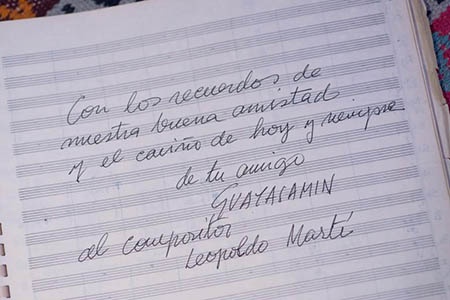 Con los recuerdos de
nuestra buena amistad
y el cariño de hoy y siempre
de tu amigo
GUAYASAMIN
al compositor
Leopoldo Martí